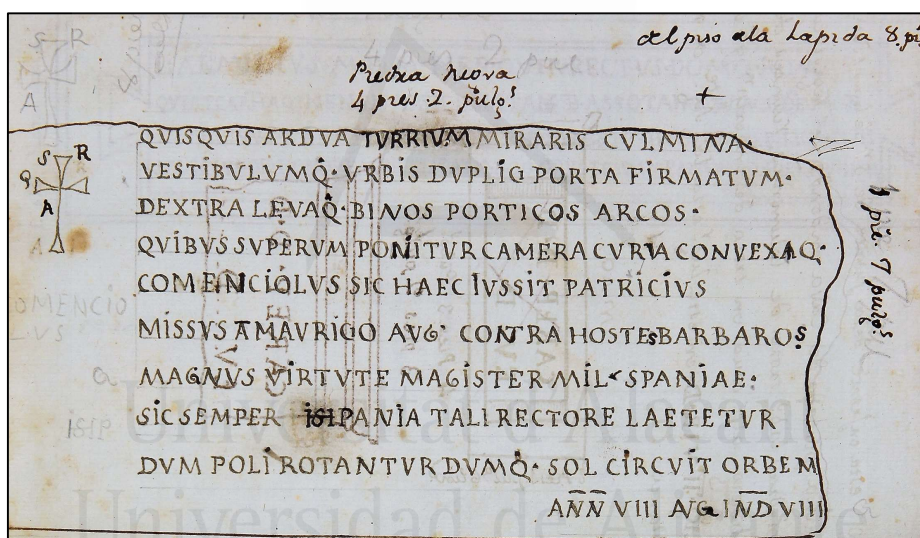 del piso ala Lapida 8. pi
Piedra negra
4 pies. 2. pulg.s
+
QVISQVIS ARDVA TVRRIVM MIRARIS CVLMINA·
VESTIBVLVMQ̇· VRBIS DVPLIC PORTA FIRMATVM·
DEXTRA LEVAQ̇· BINOS PORTICOS ARCOS·
QVIBVS SVPERVM PONITVR CAMERA CVRVA CONVEXAQ·
COMENCIOLVS SIC HAEC IVSSIT PATRICIVS
MISSVS A MAVRICIO AVG· CONTRA HOSTES BARBAROS
MAGNVS VIRTVTE MAGISTER MIL· SPANIAE·
SIC SEMPER PANIA TALI RECTORE LAETETVR
DVM POLI ROTANTVR DVMQ̇· SOL CIRCVIT ORBEM
ANN VIII AVG IND VIII
S R
A
1 pie. 7 pulg.s
COMENCIO
LVS
Universitat d'Alacant
Universidad de Alicante